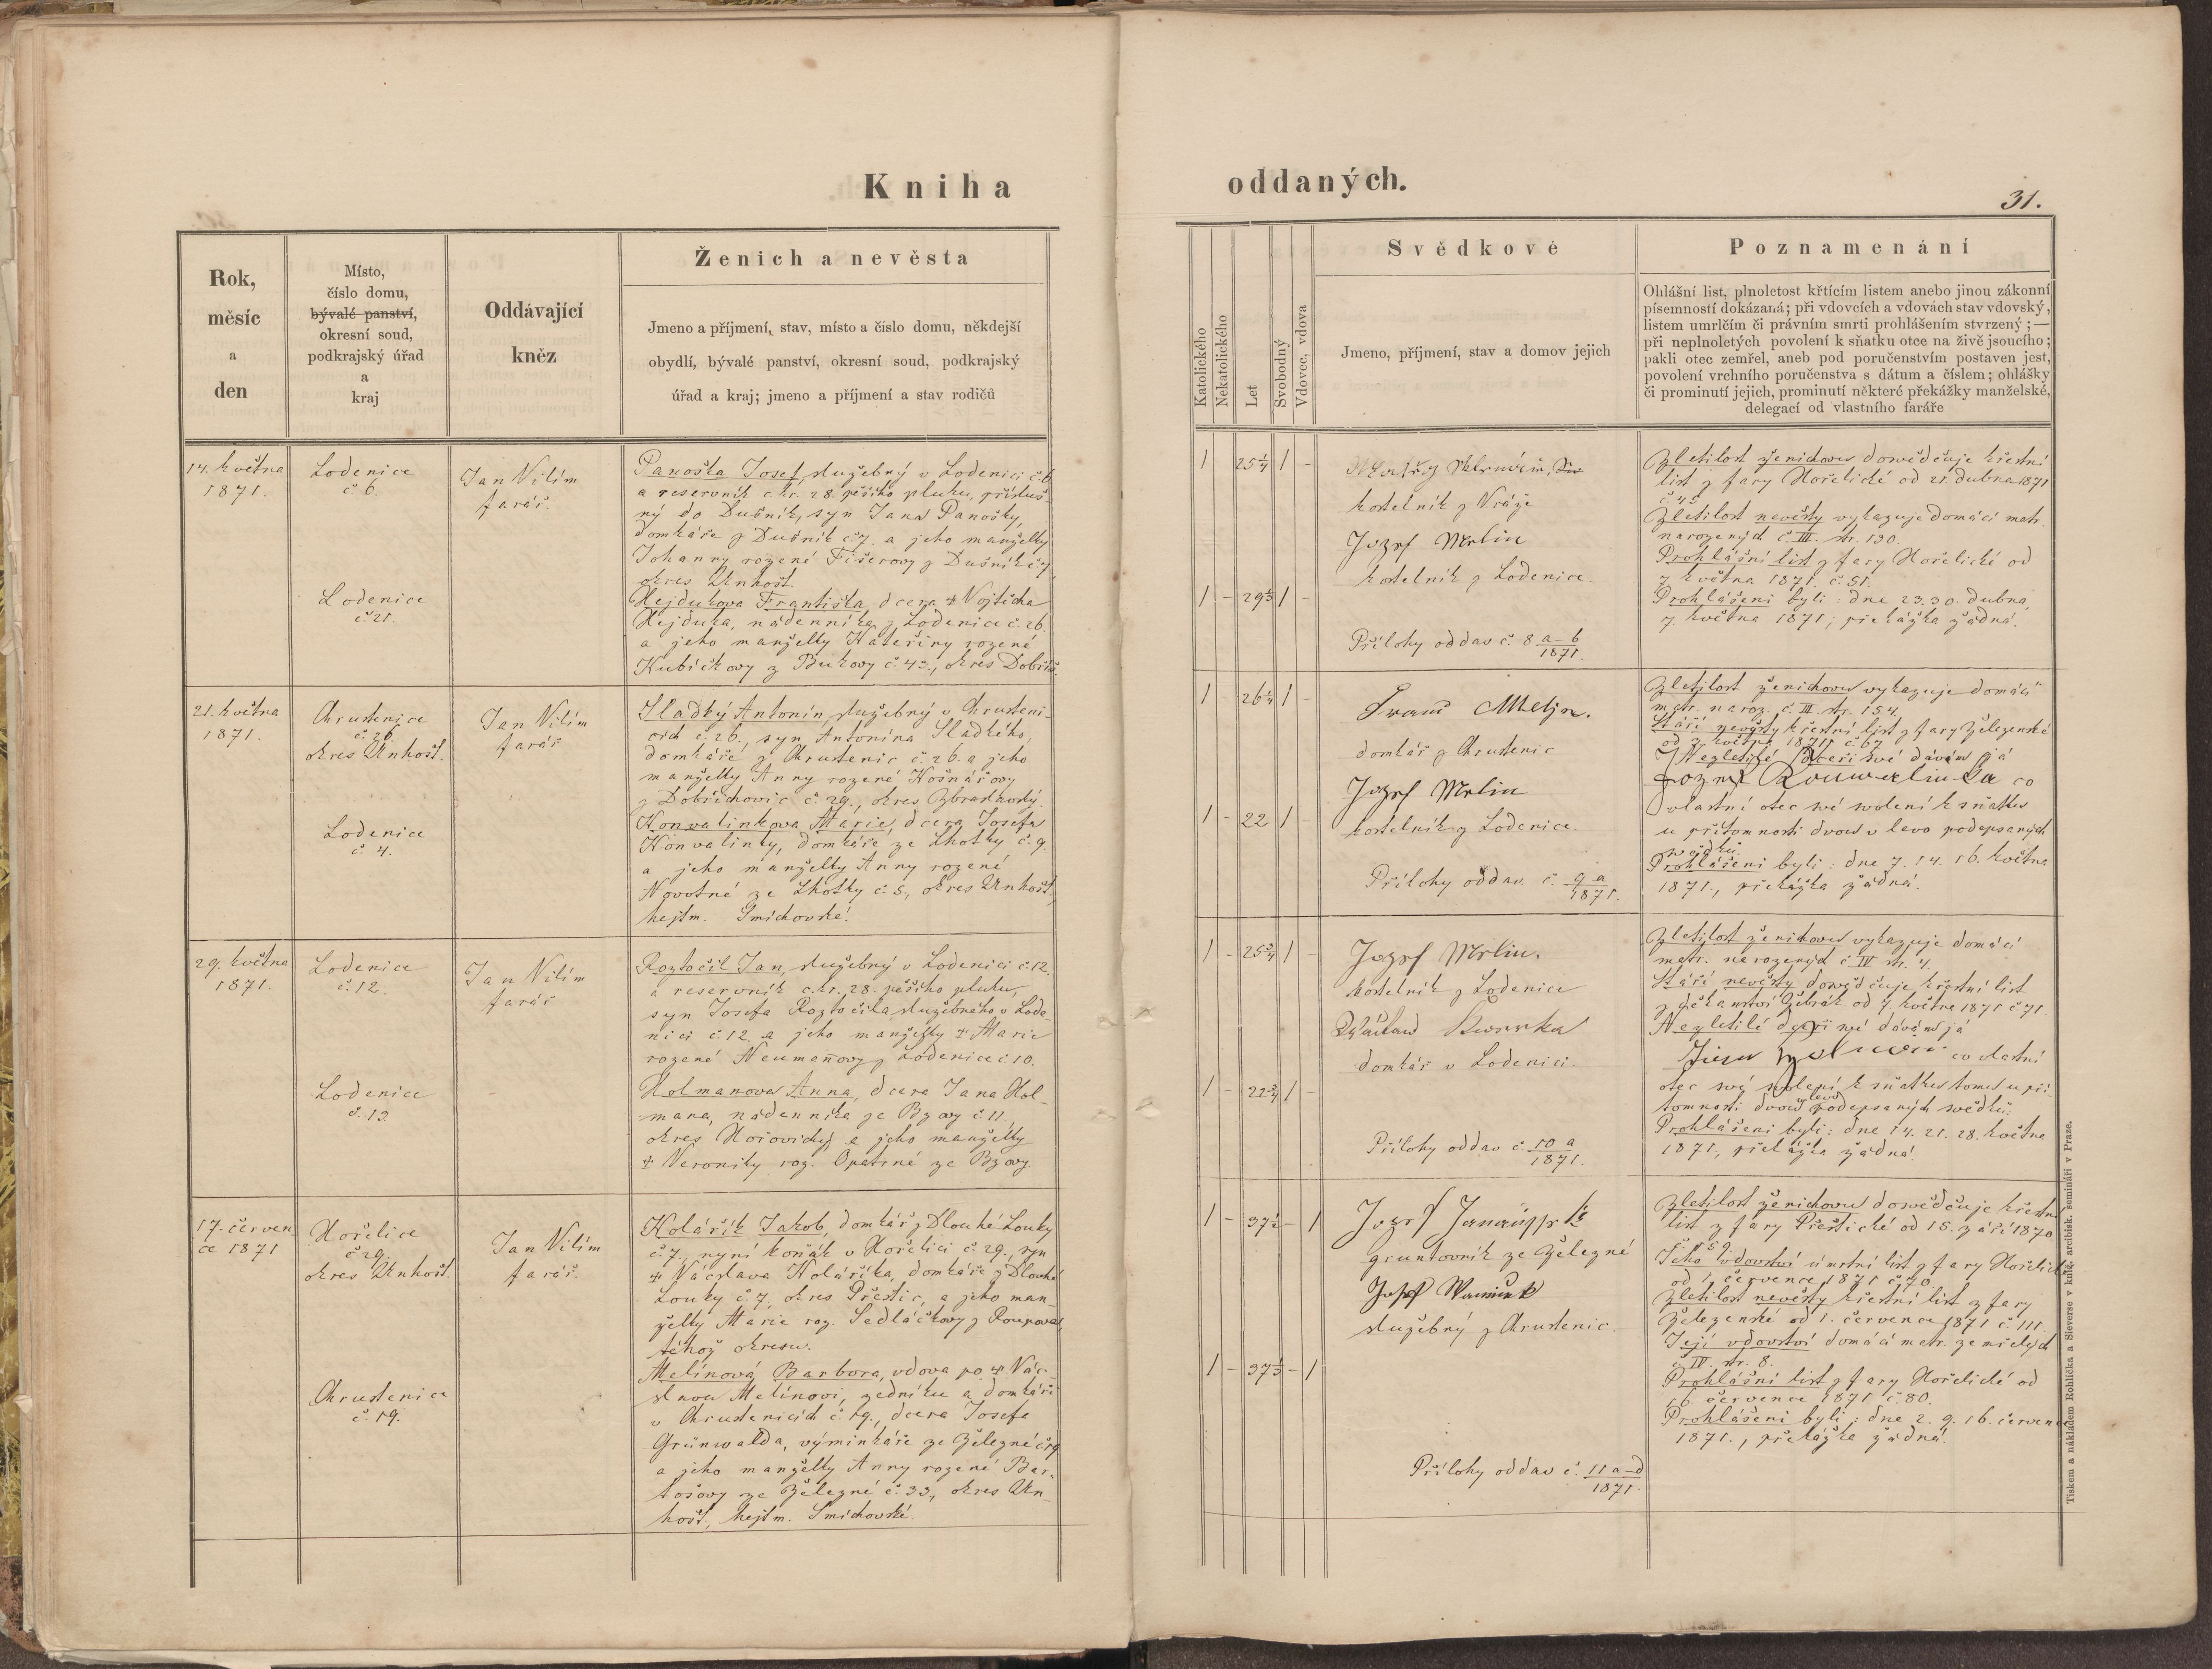 Kniha
oddaných.
31.
Rok,
měsíc
a
den
Místo,
číslo domu,
bývalé panství,
okresní soud,
podkrajský úřad
a
kraj
Oddávající
kněz
Ženich a nevěsta
Jmeno a příjmení, stav, místo a číslo domu, někdejší
obydlí, bývalé panství, okresní soud, podkrajský
úřad a kraj; jmeno a příjmení a stav rodičů
Katolického
Nekatolického
Let
Svobodný
Vdovec, vdova
Svědkové
Jmeno, příjmení, stav a domov jejich
Poznamenání
Ohlášní list, plnoletost křtícím listem anebo jinou zákonní
písemností dokázaná; při vdovcích a vdovách stav vdovský,
listem umrlčím či právním smrti prohlášením stvrzený; —
při neplnoletých povolení k sňatku otce na živě jsoucího;
pakli otec zemřel, aneb pod poručenstvím postaven jest,
povolení vrchního poručenstva s dátum a číslem; ohlášky
či prominutí jejich, prominutí některé překážky manželské,
delegací od vlastního faráře
14. května
1871.
Lodenice
č. 6.
Jan Vilím
farář.
Panoška Josef, služebný v Lodenici č. 6
a reservník c. kr. 28. pěšího pluku, přísluš-
ný do Dušník, syn Jana Panošky,
domkáře z Dušník č 7. a jeho manželky
Johanny rozené Fišerovy z Dušník č 7
okres Unhošť.
Lodenice
č. 21.
Hejdukova Františka, dcera † Vojtěcha
Hejduka, nádenníka z Lodenice č. 26.
a jeho manželky Kateřiny rozené
Kubíčkovy z Bukovy č. 43., okres Dobříš.
1 25¼ 1 -
kostelník z Vráže
Jozef Merlin
kostelník z Lodenice
1 - 29 1 -
Přílohy oddav č. 8 a-b
1871.
Zletilost ženichovu dowědčuje křestní
list z fary Hořelické od 21. dubna 1871
č. 45
Zletilost nevěsty vykazuje domácí matr.
narozených č. III. str. 130.
Prohlášní list z fary Hořelické od
7 května 1871. č. 51.
Prohlášeni byli: dne 23. 30. dubna,
7. května 1871; překážka žádná.
21. května
1871.
Chrustenice
č. 26
okres Unhošť.
Jan Vilím
farář
Sladký Antonín, služebný v Chrusteni-
cích č. 26., syn Antonína Sladkého,
domkáře z Chrustenic č. 26. a jeho
manželky Anny rozené Košnářovy
z Dobřichovic č. 29., okres Zbraslavský.
Lodenice
č. 4.
Konvalinkova Marie, dcera Josefa
Konvalinky, domkáře ze Lhotky č. 9.
a jeho manželky Anny rozené
Novotné ze Lhotky č. 5, okres Unhošť,
hejtm. Smíchovské.
1 - 26¼ 1 -
domkář z Chrustenic
Jozef Merlin
kostelník z Lodenice.
1 - 22 1 -
Přílohy oddav. č. 9 a
1871.
Zletilost ženichovu vykazuje domácí
matr. naroz. č. III. str. 154.
Stáří nevěsty křestní list z fary Železenské
od 3. května 1871 č. 67
Nezletilé dceři své dávám já
Jozef Konwalinka co
vlastní otec své svolení k sňatku
u přítomnosti dvou v levo podepsaných
svědků.
Prohlášeni byli: dne 7. 14. 16. května
1871., překážka žádná.
29. května
1871.
Lodenice
č. 12.
Jan Vilím
farář
Roztočil Jan, služebný v Lodenici č. 12.
a reservník c. kr. 28. pěšího pluku,
syn Josefa Roztočila, služebného v Lode-
nici č. 12. a jeho manželky † Marie
rozené Neumañovy z Lodenice č. 10.
Lodenice
č. 13.
Holmanova Anna, dcera Jana Hol-
mana, nádenníka ze Bzovy č. 11.,
okres Hořovický a jeho manželky
† Veroniky roz. Opatrné ze Bzovy.
1 - 25¾ 1 -
Jozef Merlin.
kostelník z Lodenice
domkář v Lodenici.
1 - 22¾ 1 -
Přílohy oddav č. 10 a
1871.
Zletilost ženichovu vykazuje domácí
matr. narozených č. IV str. 4.
Stáří nevěsty dowědčuje křestní list
z děkanství Žebrák od 7 května 1871 č 71
Nezletilé dceři své dávám já
co vlastní
otec své svolení k sňatku tomu u pří-
tomnosti dvou vlevo podepsaných svědků.
Prohlášeni byli: dne 14. 21. 28. května
1871, překážka žádná.
17. červen
ce 1871
Hořelice
č 29.
okres Unhošť.
Jan Vilím
farář.
Kolářík Jakob, domkář z Dlouhé Louky
č. 7., nyní koňák v Hořelici č. 29., syn
† Václava Koláříka, domkáře z Dlouhé
Louky č. 7, okres Přestic, a jeho man-
želky Marie roz. Sedláčkovy z Roupova,
téhož okresu.
Chrustenice
č. 19.
Melínová Barbora, vdova po † Vác-
slavu Melínovi, zedníku a domkáři
v Chrustenicích č. 19., dcera Josefa
Grünwalda, výminkáře ze Železné č 19
a jeho manželky Anny rozené Bar-
tošovy ze Železné č. 33, okres Un-
hošť, hejtm. Smíchovské.
1 - 37½ - 1
gruntovník ze Železné
služebný z Chrustenic.
1 - 37 - 1
Přílohy oddav č. 11 a-d
1871.
Zletilost ženichovu dowědčuje křestní
list z fary Přestické od 15. září 1870
Jeho vdovství úmrtní list z fary Hořelické
od 1. července 1871 č. 70.
Zletilost nevěsty křestní list z fary
Železenské od 1. července 1871 č. 111.
Její vdovství domácí matr. zemřelých
č. IV. str. 8.
Prohlášní list z fary Hořelické od
16. července 1871 č. 80.
Prohlášeni byli: dne 2. 9. 16. července
1871., překážka žádná.
Tiskem a nákladem Rohlíčka a Sieverse v kníž. arcibisk. semináři v Praze.